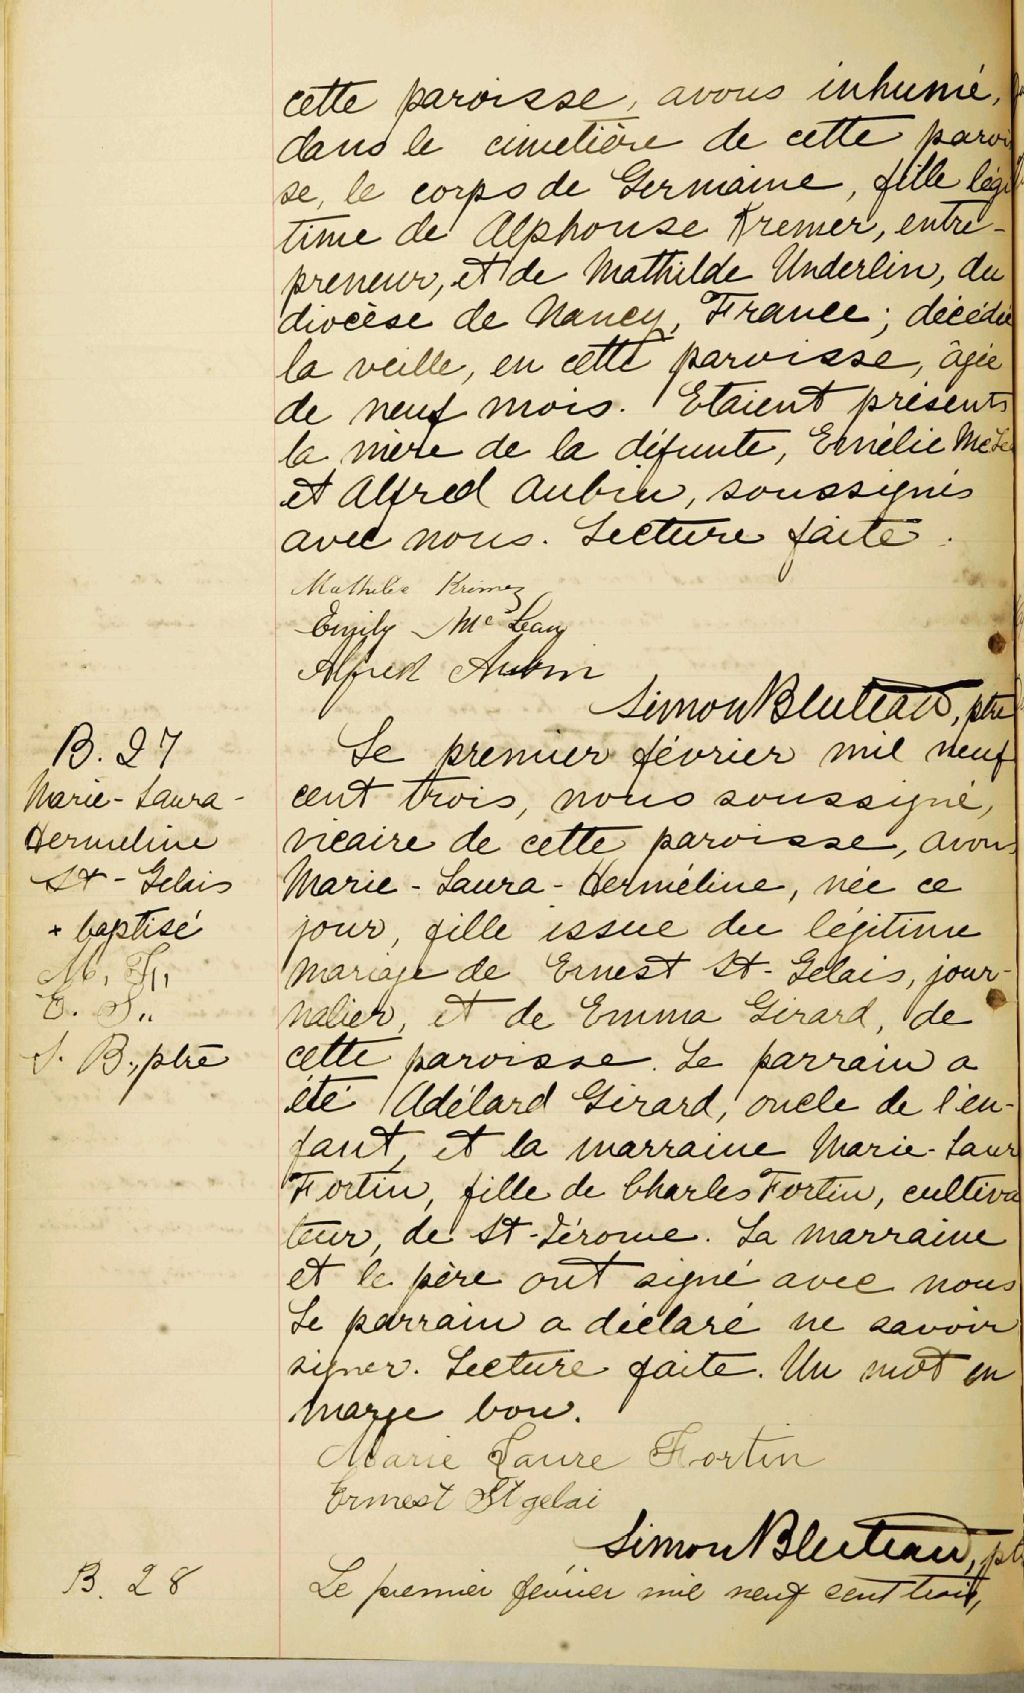 cette paroisse, avons inhumé,
dans le cimetière de cette parois
se, le corps de Germaine, fille légi
time de Alphonse Kremer, entre-
preneur, et de Mathilde Underlin, du
diocèse de Nancy, France; décédée
la veille, en cette paroisse, âgée
de neuf mois. Etaient présents
la mère de la défunte, Emélie McLe
et Alfred Aubin, soussignés
avec nous. Lecture faite.
Mathilde Krémer
Emily McLean
Alfred Aubin
Simon Bluteau, ptre
B. 27
Marie-Laura-
Herméline
St-Gelais
+ baptisé
M. F.,
E. S.,
S. B., ptre
Le premier février mil neuf
cent trois, nous soussigné,
vicaire de cette paroisse, avons
Marie-Laura-Herméline, née ce
jour, fille issue du légitime
mariage de Ernest St-Gelais, jour-
nalier, et de Emma Girard, de
cette paroisse. Le parrain a
été Adélard Girard, oncle de l'en-
fant, et la marraine Marie-Laur
Fortin, fille de Charles Fortin, cultiva
teur, de St-Jérome. La marraine
et le père ont signé avec nous
Le parrain a déclaré ne savoir
signer. Lecture faite. Un mot en
marge bon.
Marie Laure Fortin
Ernest St gelai
Simon Bluteau, pt
B. 28
Le premier février mil neuf cent trois,